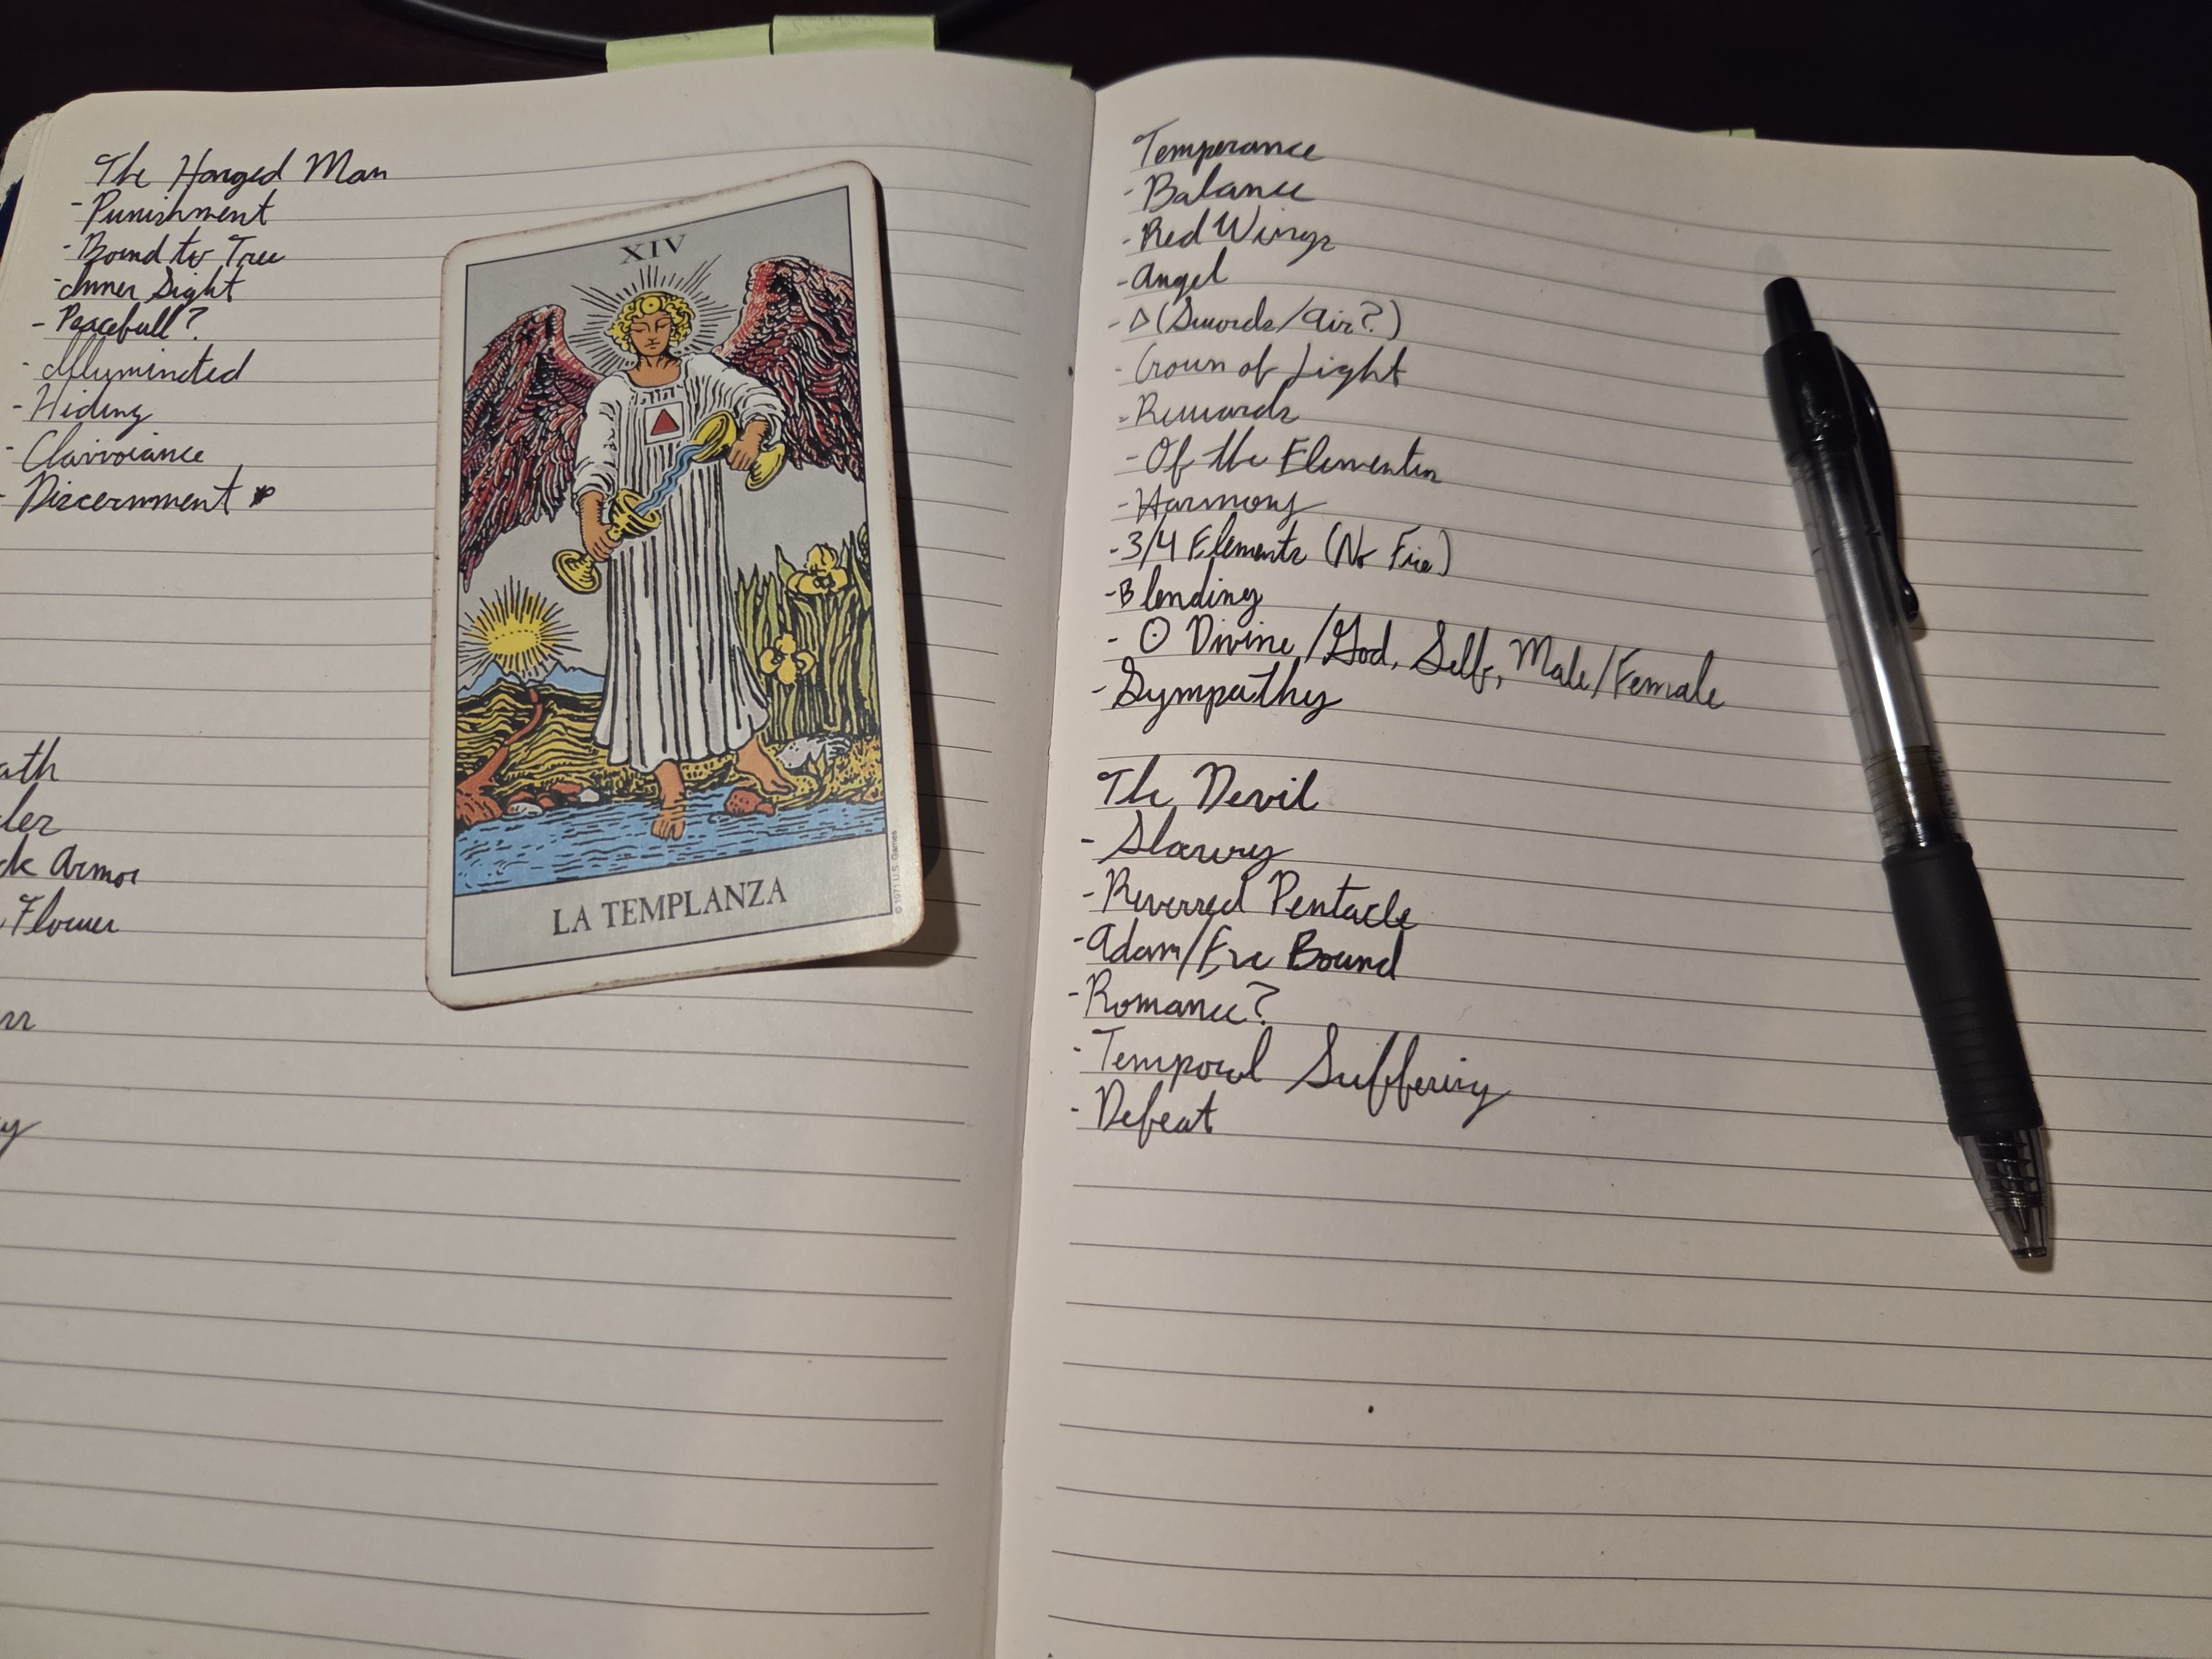 The Hanged Man
- Punishment
- Bound to Tree
- Inner Sight
- Peacefull?
- Illuminated
- Hiding
- Clairvoiance
- Discernment *
ath
ler
ck Armor
Flower
rr
y
XIV
LA TEMPLANZA
© 1971 U.S. Games
Temperance
- Balance
- Red Wings
- Angel
- △ (Swords/Air?)
- Crown of Light
- Rewards
- Of the Elements
- Harmony
- 3/4 Elements (No Fire)
- Blending
- ⊙ Divine/God, Self, Male/Female
- Sympathy
The Devil
- Slavery
- Reversed Pentacle
- Adam/Eve Bound
- Romance?
- Temporal Suffering
- Defeat